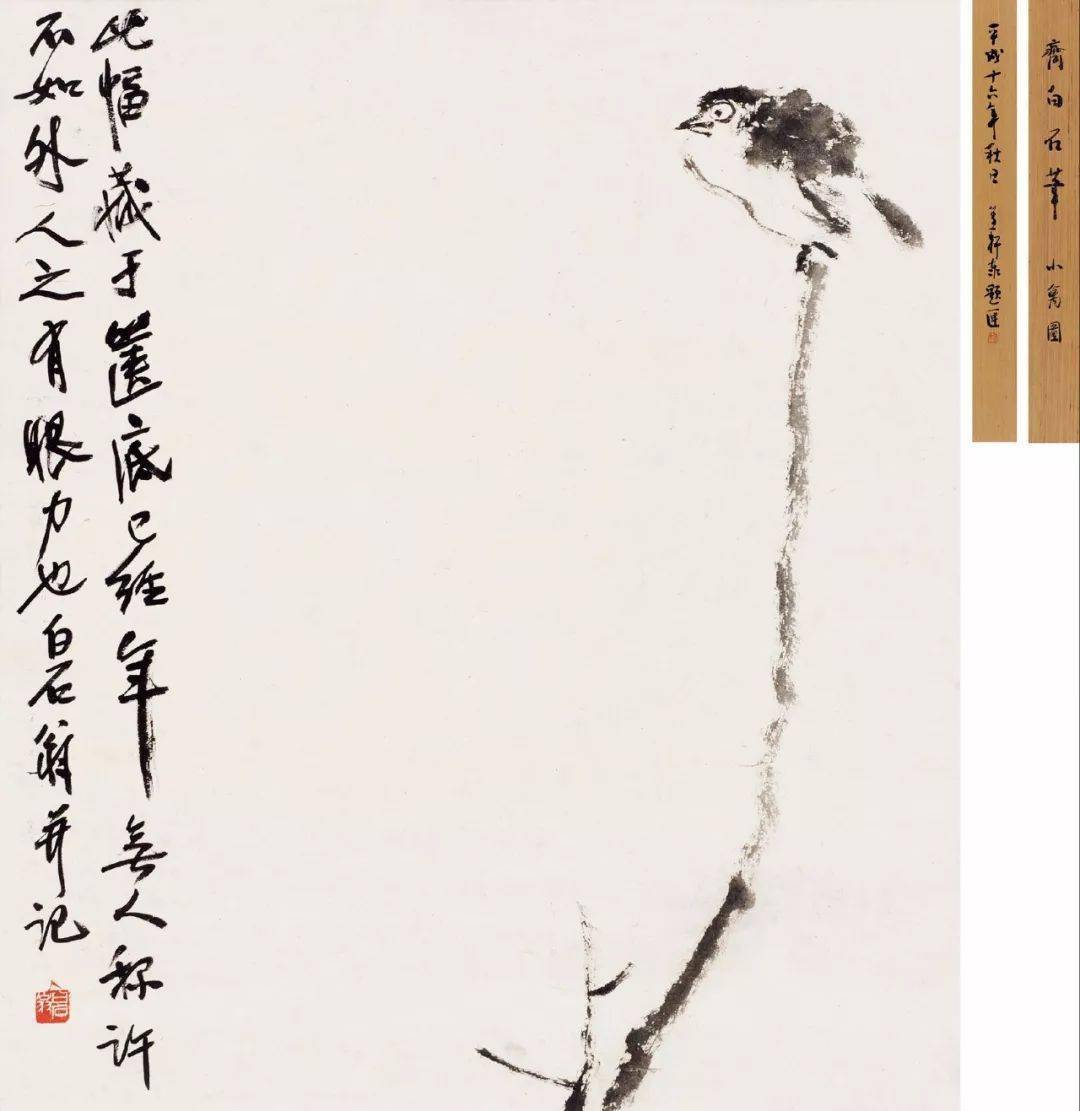 此幅藏于箧底已经年无人称许
不如外人之有眼力也白石翁并记
齊白石筆 小禽圖
平成十六年秋日
題匣